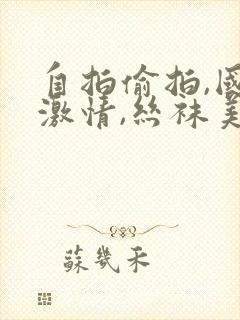 自拍偷拍,國
激情,丝袜美
蘇幾禾